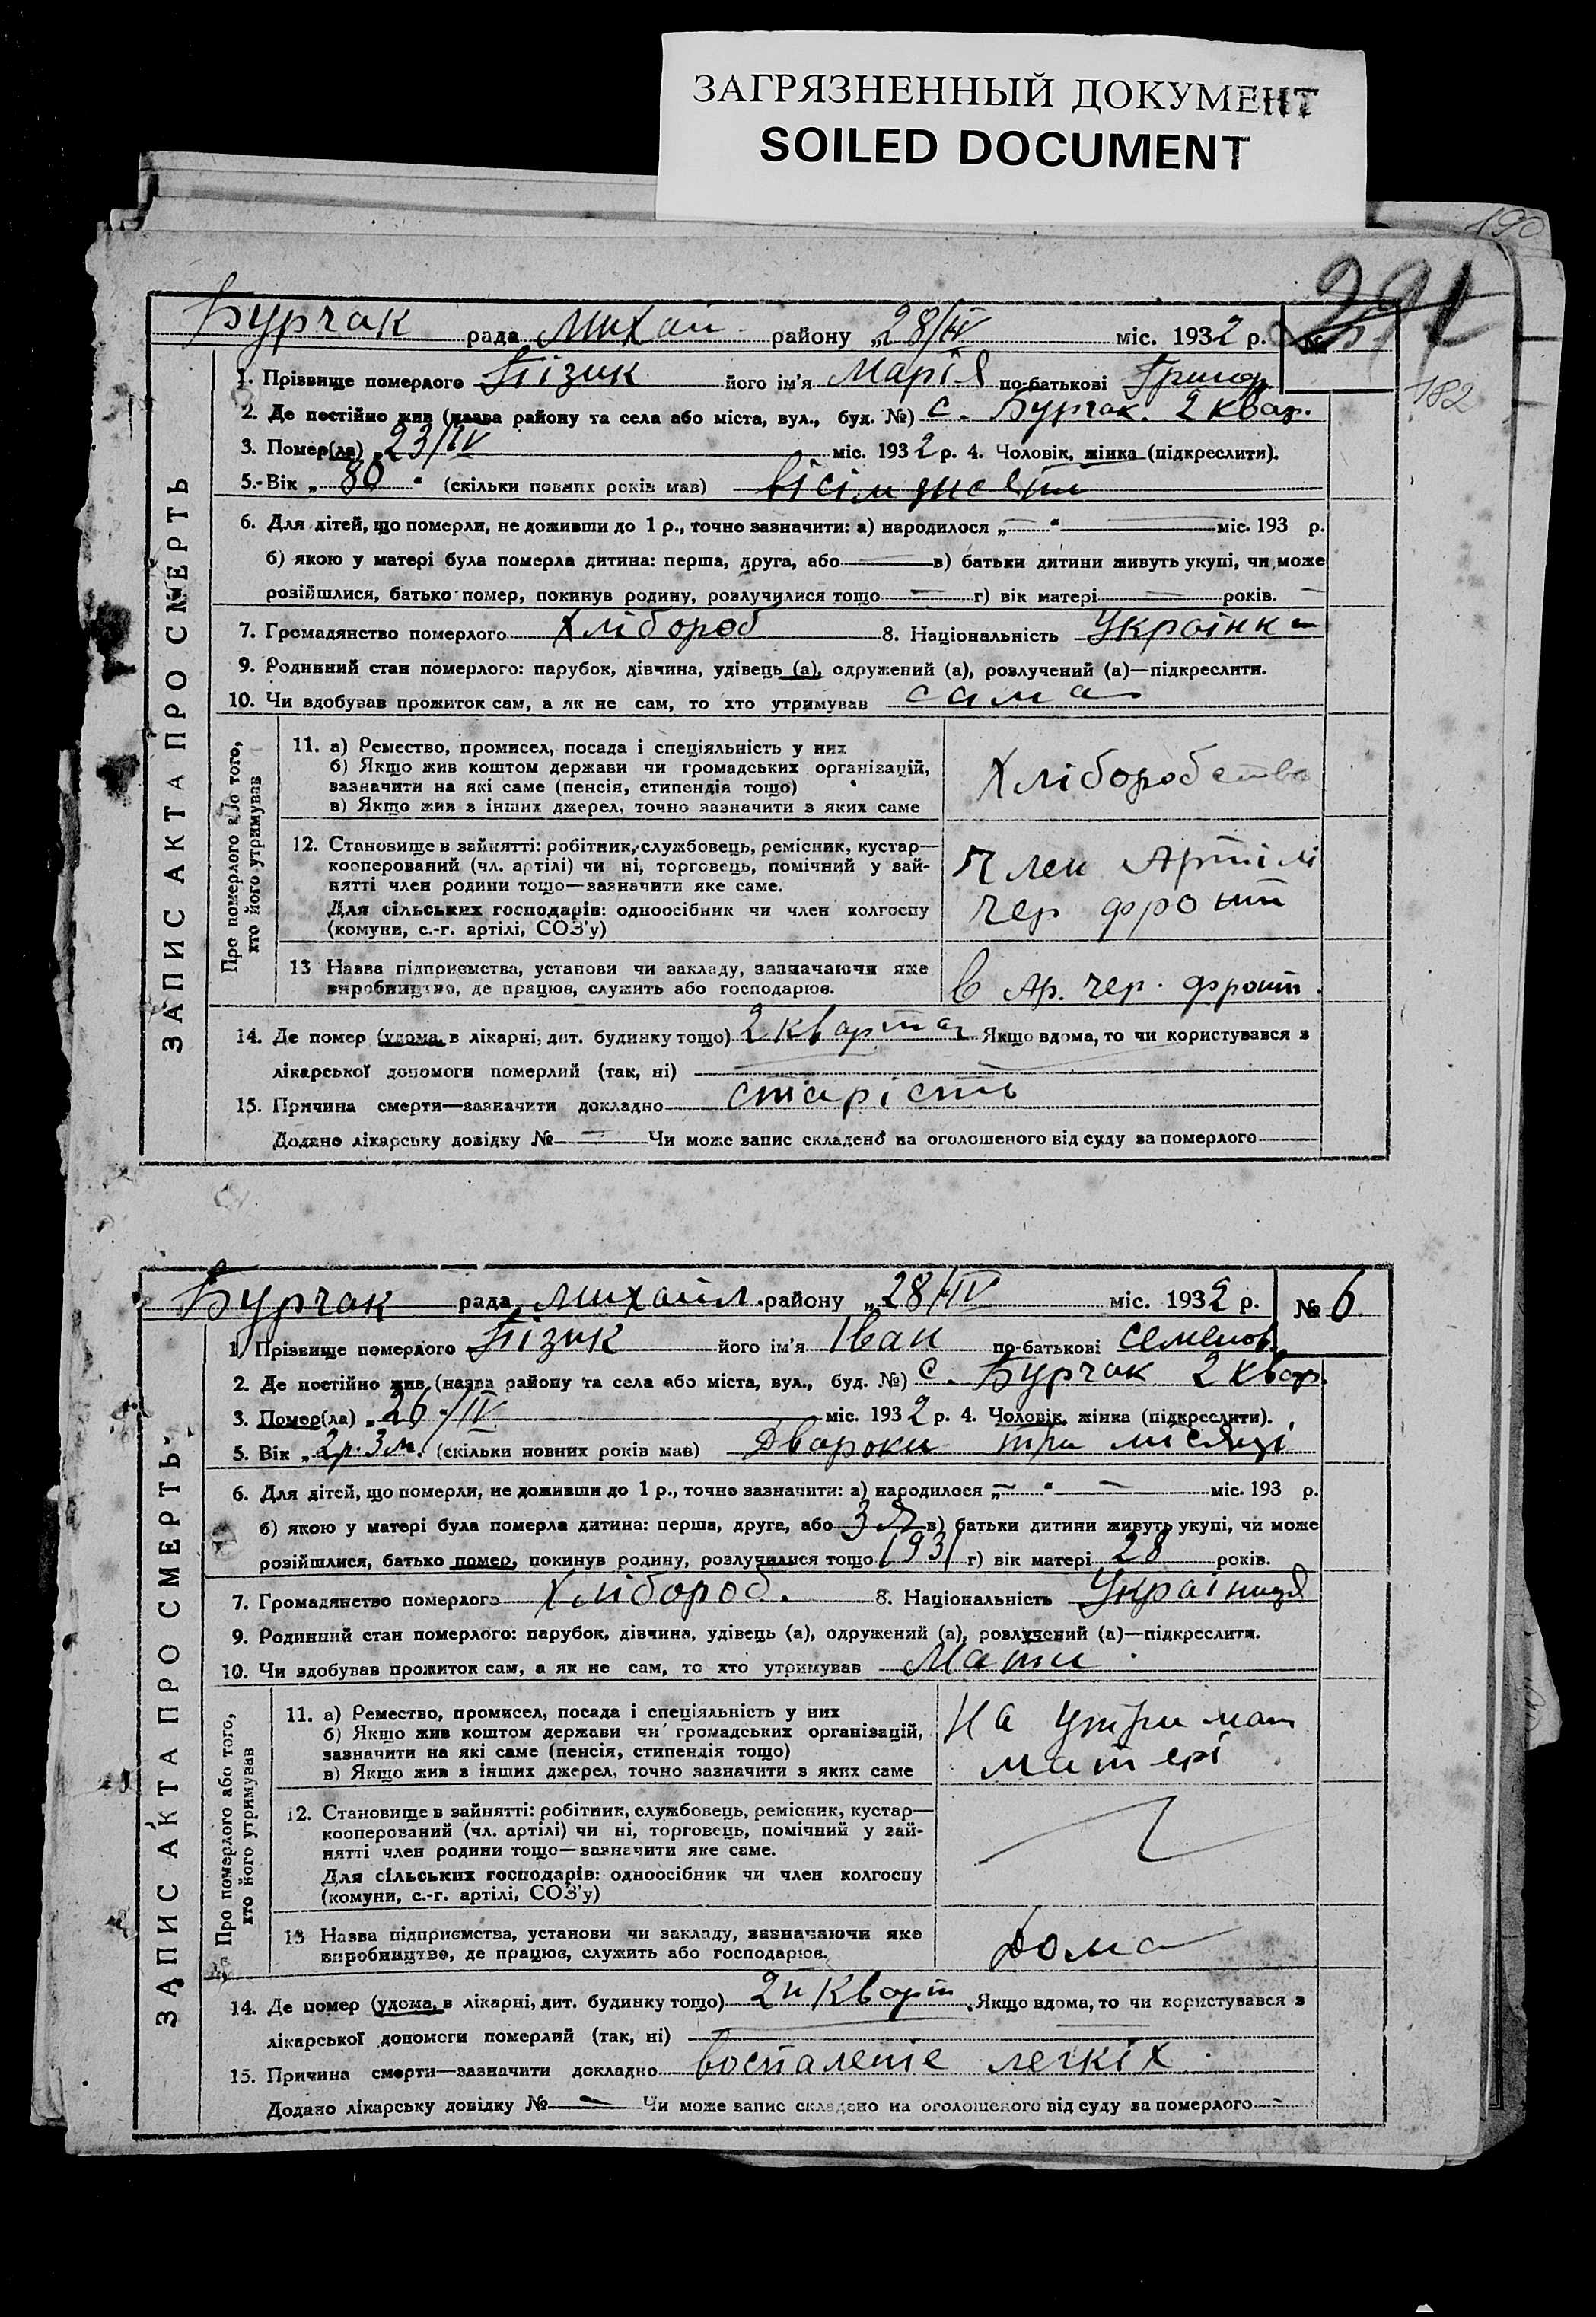 ЗАГРЯЗНЕННЫЙ ДОКУМЕНТ
SOILED DOCUMENT
190
291
182
Бурчак рада Михай району „28/IV міс. 1932 р. №
ЗАПИС АКТА ПРО СМЕРТЬ
1. Прізвище померлого Пізик його ім'я Марія по-батькові Григор
2. Де постійно жив (назва району та села або міста, вул., буд. №) с. Бурчак. 2 квар.
3. Помер(ла) „23/IV міс. 1932 р. 4. Чоловік, жінка (підкреслити).
5. Вік „80" (скільки повних років мав)
6. Для дітей, що померли, не доживши до 1 р., точно зазначити: а) народилося „—" — міс. 193 р.
б) якою у матері була померла дитина: перша, друга, або — в) батьки дитини живуть укупі, чи може
розійшлися, батько помер, покинув родину, розлучилися тощо — г) вік матері — років. —
7. Громадянство померлого Хлібороб 8. Національність Українк
9. Родинний стан померлого: парубок, дівчина, удівець (а), одружений (а), розлучений (а)—підкреслити.
10. Чи здобував прожиток сам, а як не сам, то хто утримував сама
Про померлого або того,
хто його утримував
11. а) Ремество, промисел, посада і спеціяльність у них
б) Якщо жив коштом держави чи громадських організацій,
зазначити на які саме (пенсія, стипендія тощо)
в) Якщо жив з інших джерел, точно зазначити з яких саме
Хліборобство
12. Становище в зайнятті: робітник, службовець, ремісник, кустар—
кооперований (чл. артілі) чи ні, торговець, помічний у зай-
нятті член родини тощо—зазначити яке саме.
Для сільських господарів: одноосібник чи член колгоспу
(комуни, с.-г. артілі, СОЗ'у)
Член Артілі
чер фронт
13 Назва підприємства, установи чи закладу, зазначаючи яке
виробництво, де працює, служить або господарює.
в Ар. чер. фронт.
14. Де помер (удома, в лікарні, дит. будинку тощо) 2 кварта Якщо вдома, то чи користувався з
лікарської допомоги померлий (так, ні) —
15. Причина смерти—зазначити докладно старість
Додано лікарську довідку № — Чи може запис складено на оголошеного від суду за померлого
Бурчак рада Михайл. району „28/IV міс. 1932 р. № 6
ЗАПИС АКТА ПРО СМЕРТЬ
1. Прізвище померлого Пізик його ім'я Іван по-батькові Семенов
2. Де постійно жив (назва району та села або міста, вул., буд. №) с. Бурчак 2 квар.
3. Помер(ла) „26/IV міс. 1932 р. 4. Чоловік, жінка (підкреслити).
5. Вік „2р. 3м. (скільки повних років мав) Двароки три місяці
6. Для дітей, що померли, не доживши до 1 р., точно зазначити: а) народилося „—" — міс. 193 р.
б) якою у матері була померла дитина: перша, друга, або 3 я в) батьки дитини живуть укупі, чи може
розійшлися, батько помер, покинув родину, розлучилися тощо 1931 г) вік матері 28 років.
7. Громадянство померлого Хлібороб. 8. Національність Українця
9. Родинний стан померлого: парубок, дівчина, удівець (а), одружений (а), розлучений (а)—підкреслити.
10. Чи здобував прожиток сам, а як не сам, то хто утримував Мати
Про померлого або того,
хто його утримував
11. а) Ремество, промисел, посада і спеціяльність у них
б) Якщо жив коштом держави чи громадських організацій,
зазначити на які саме (пенсія, стипендія тощо)
в) Якщо жив з інших джерел, точно зазначити з яких саме
На утриман
матері
12. Становище в зайнятті: робітник, службовець, ремісник, кустар—
кооперований (чл. артілі) чи ні, торговець, помічний у зай-
нятті член родини тощо—зазначити яке саме.
Для сільських господарів: одноосібник чи член колгоспу
(комуни, с.-г. артілі, СОЗ'у)
13 Назва підприємства, установи чи закладу, зазначаючи яке
виробництво, де працює, служить або господарює.
Дома
14. Де помер (удома, в лікарні, дит. будинку тощо) 2й Кварт. Якщо вдома, то чи користувався з
лікарської допомоги померлий (так, ні) —
15. Причина смерти—зазначити докладно воспаленіе легкіх.
Додано лікарську довідку № — Чи може запис складено на оголошеного від суду за померлого —